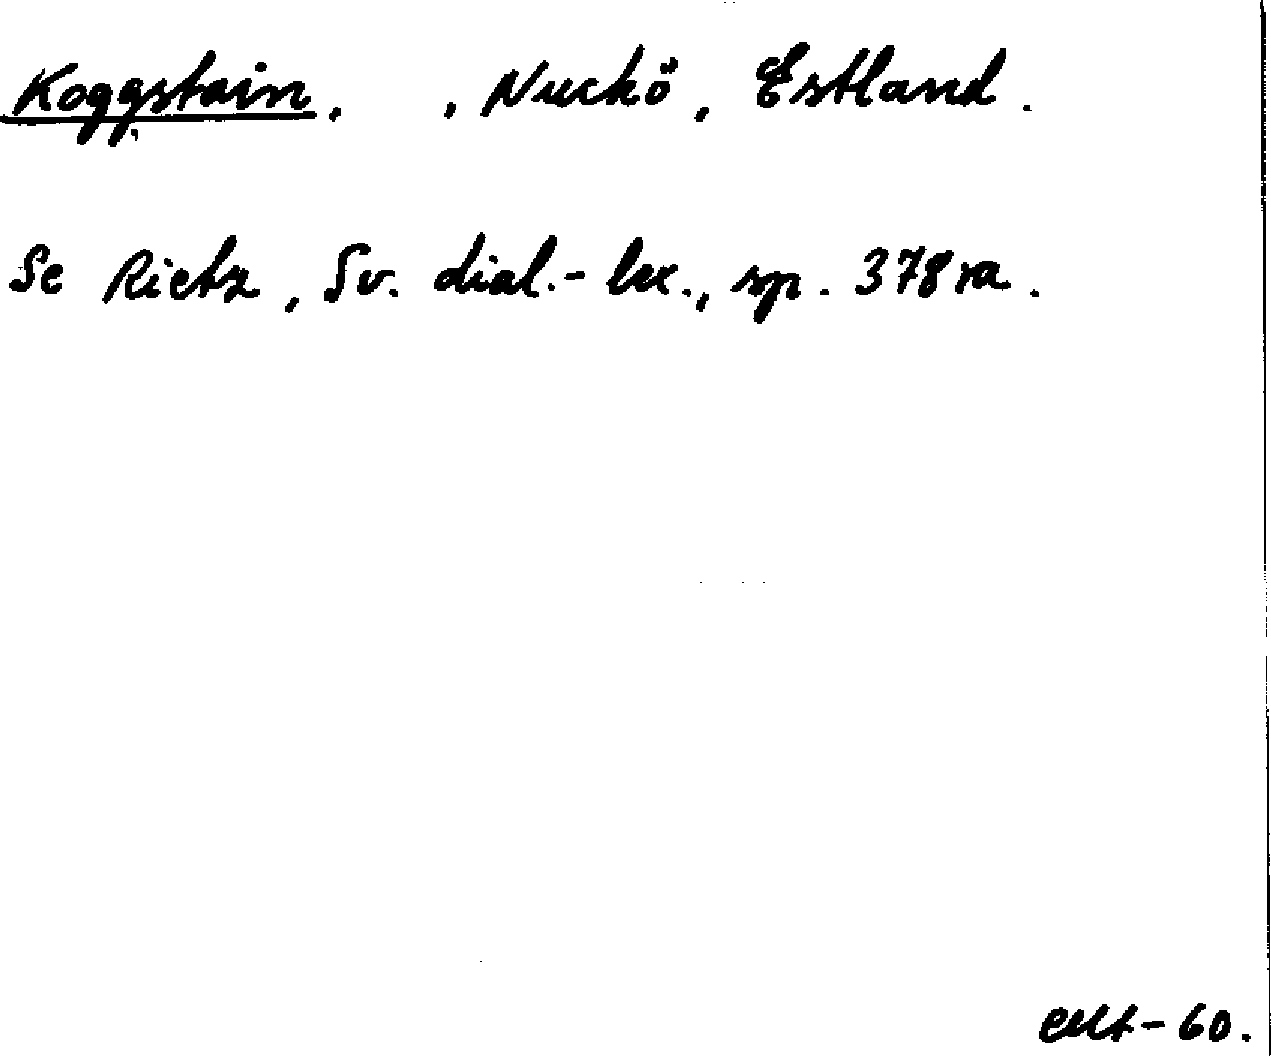 Koggstain. , Nuckö, Estland.
Se Rietz, Sv. dial.-lex., sp. 378ra.
-60.